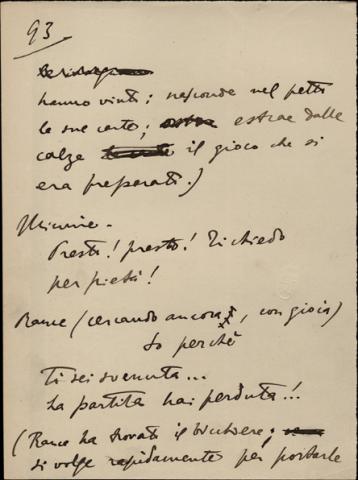 93
hanno vinto; nasconde nel petto
le sue carte; estrae dalle
calze il gioco che si
era preparato.)
Minnie -
Presto! presto! Vi chiedo
per pietà!
Rance (cercando ancora, con gioia)
So perchè
Ti sei svenuta...
La partita hai perduta!..
(Rance ha trovato il bicchiere;
si volge rapidamente per portarle